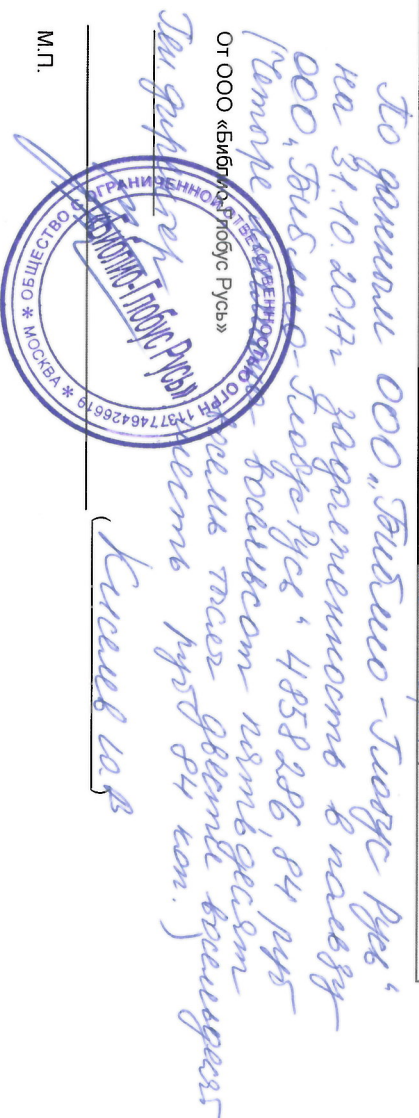 По данным ООО „Библио-Глобус Русь“
на 31.10.2017г задолженность в пользу
ООО „Библио-Глобус Русь“ 4858286,84 руб
(Четыре восемьсот пятьдесят
От ООО «Библио-Глобус Русь»
восемь тысяч двести восемьдесят
шесть руб 84 коп.)
Ген. директор
(Киселев Ю.В
М.П.
ОБЩЕСТВО С ОГРАНИЧЕННОЙ ОТВЕТСТВЕННОСТЬЮ ОГРН 1137746426619
* МОСКВА *
«Библио-Глобус Русь»